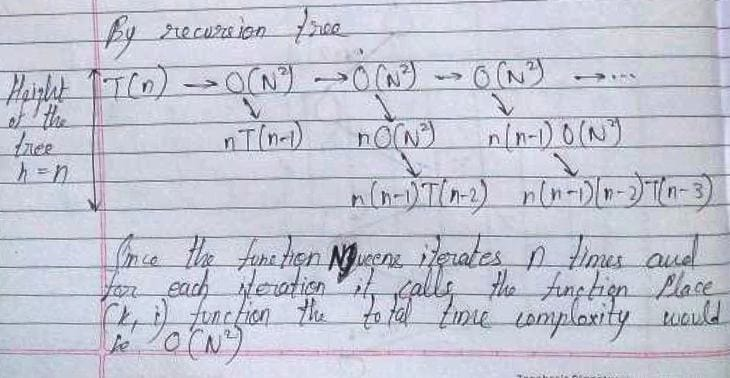 By recursion tree
Height of the tree h = n
T(n) → O(N²) → O(N²) → O(N²) → ...
nT(n-1) nO(N²) n(n-1) O(N²)
n(n-1)T(n-2) n(n-1)(n-2)T(n-3)
Since the function NQueens iterates n times and
for each iteration it calls the function Place
(k, i) function the total time complexity would
be O(N²)